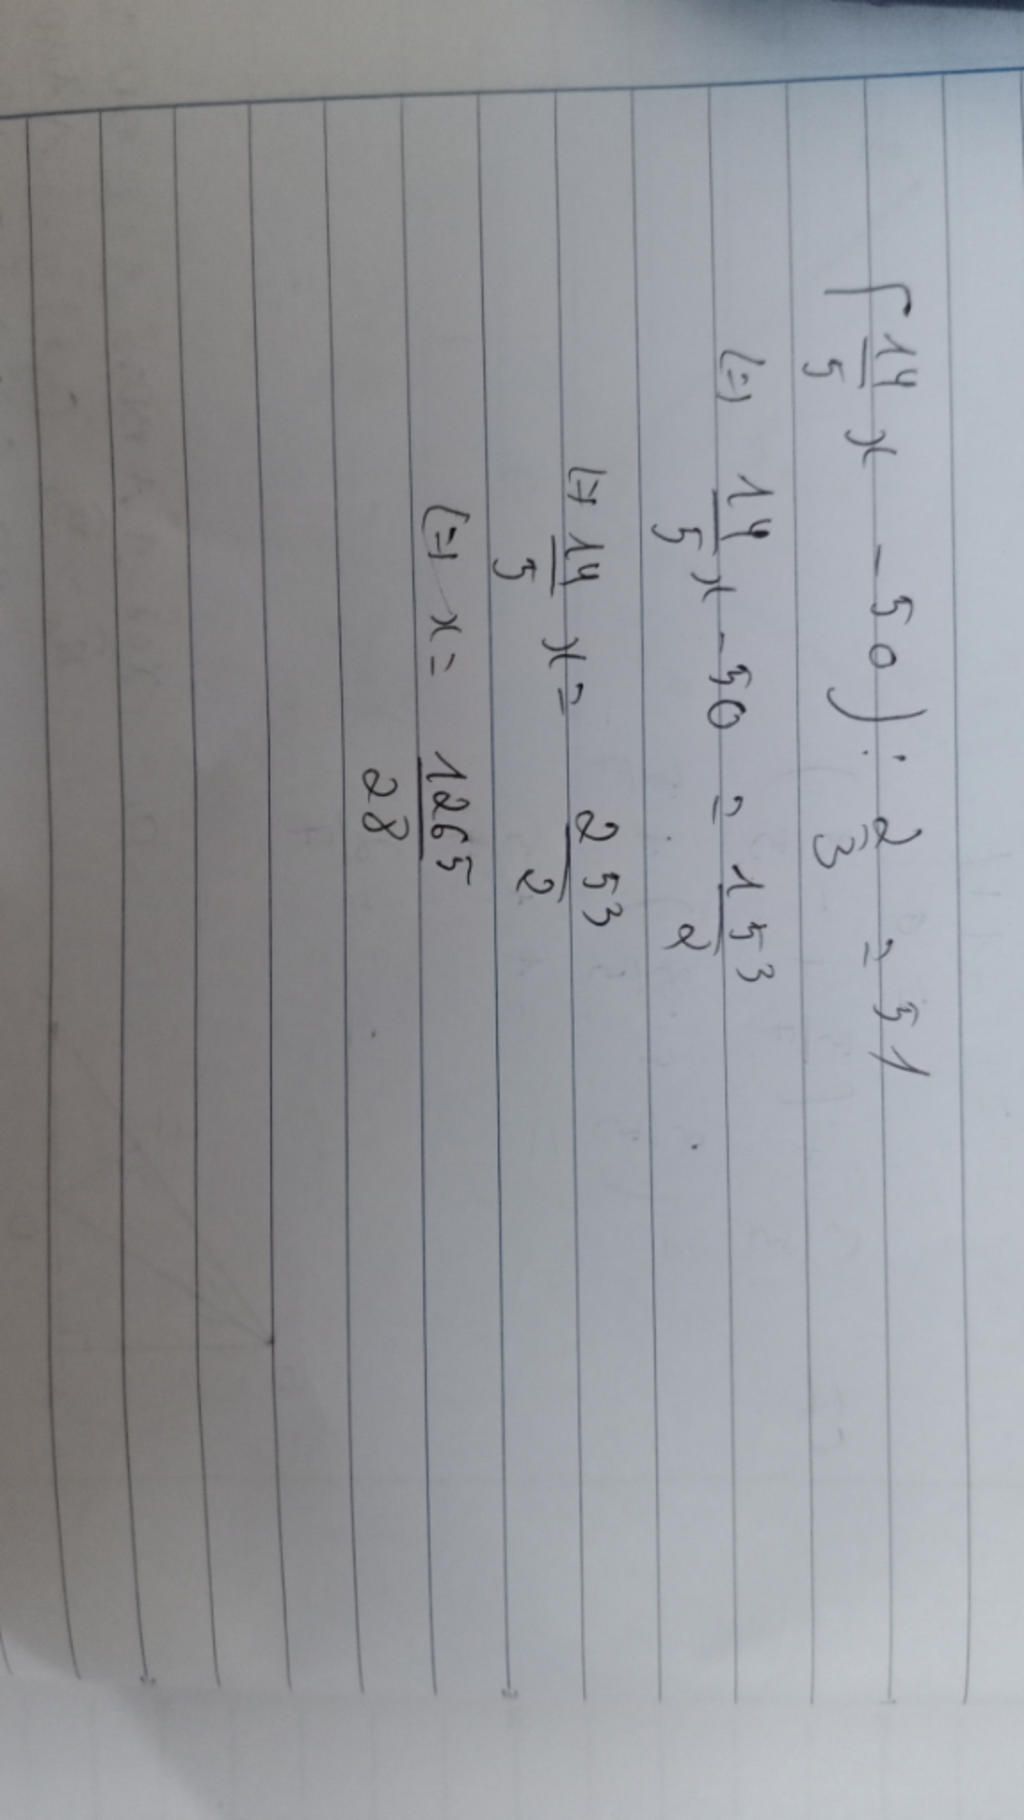 (14/5 x - 50) : 2/3 = 51
(=) 14/5 x - 50 = 153/2
(=) 14/5 x = 253/2
(=) x = 1265/28